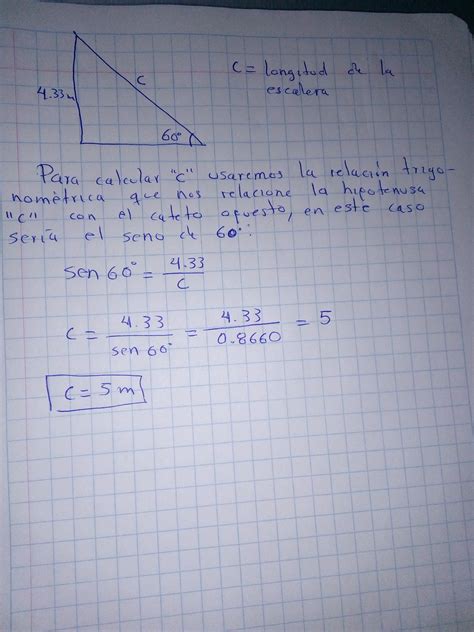 4.33m
C
60°
C = longitud de la
escalera
Para calcular "C" usaremos la relación trigo-
nométrica que nos relacione la hipotenusa
"C" con el cateto opuesto, en este caso
sería el seno de 60°:
sen 60° = 4.33 / C
C = 4.33 / sen 60° = 4.33 / 0.8660 = 5
C = 5 m